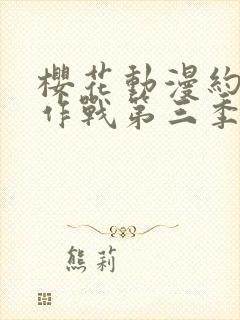 櫻花動漫約
作戰第三季
熊莉